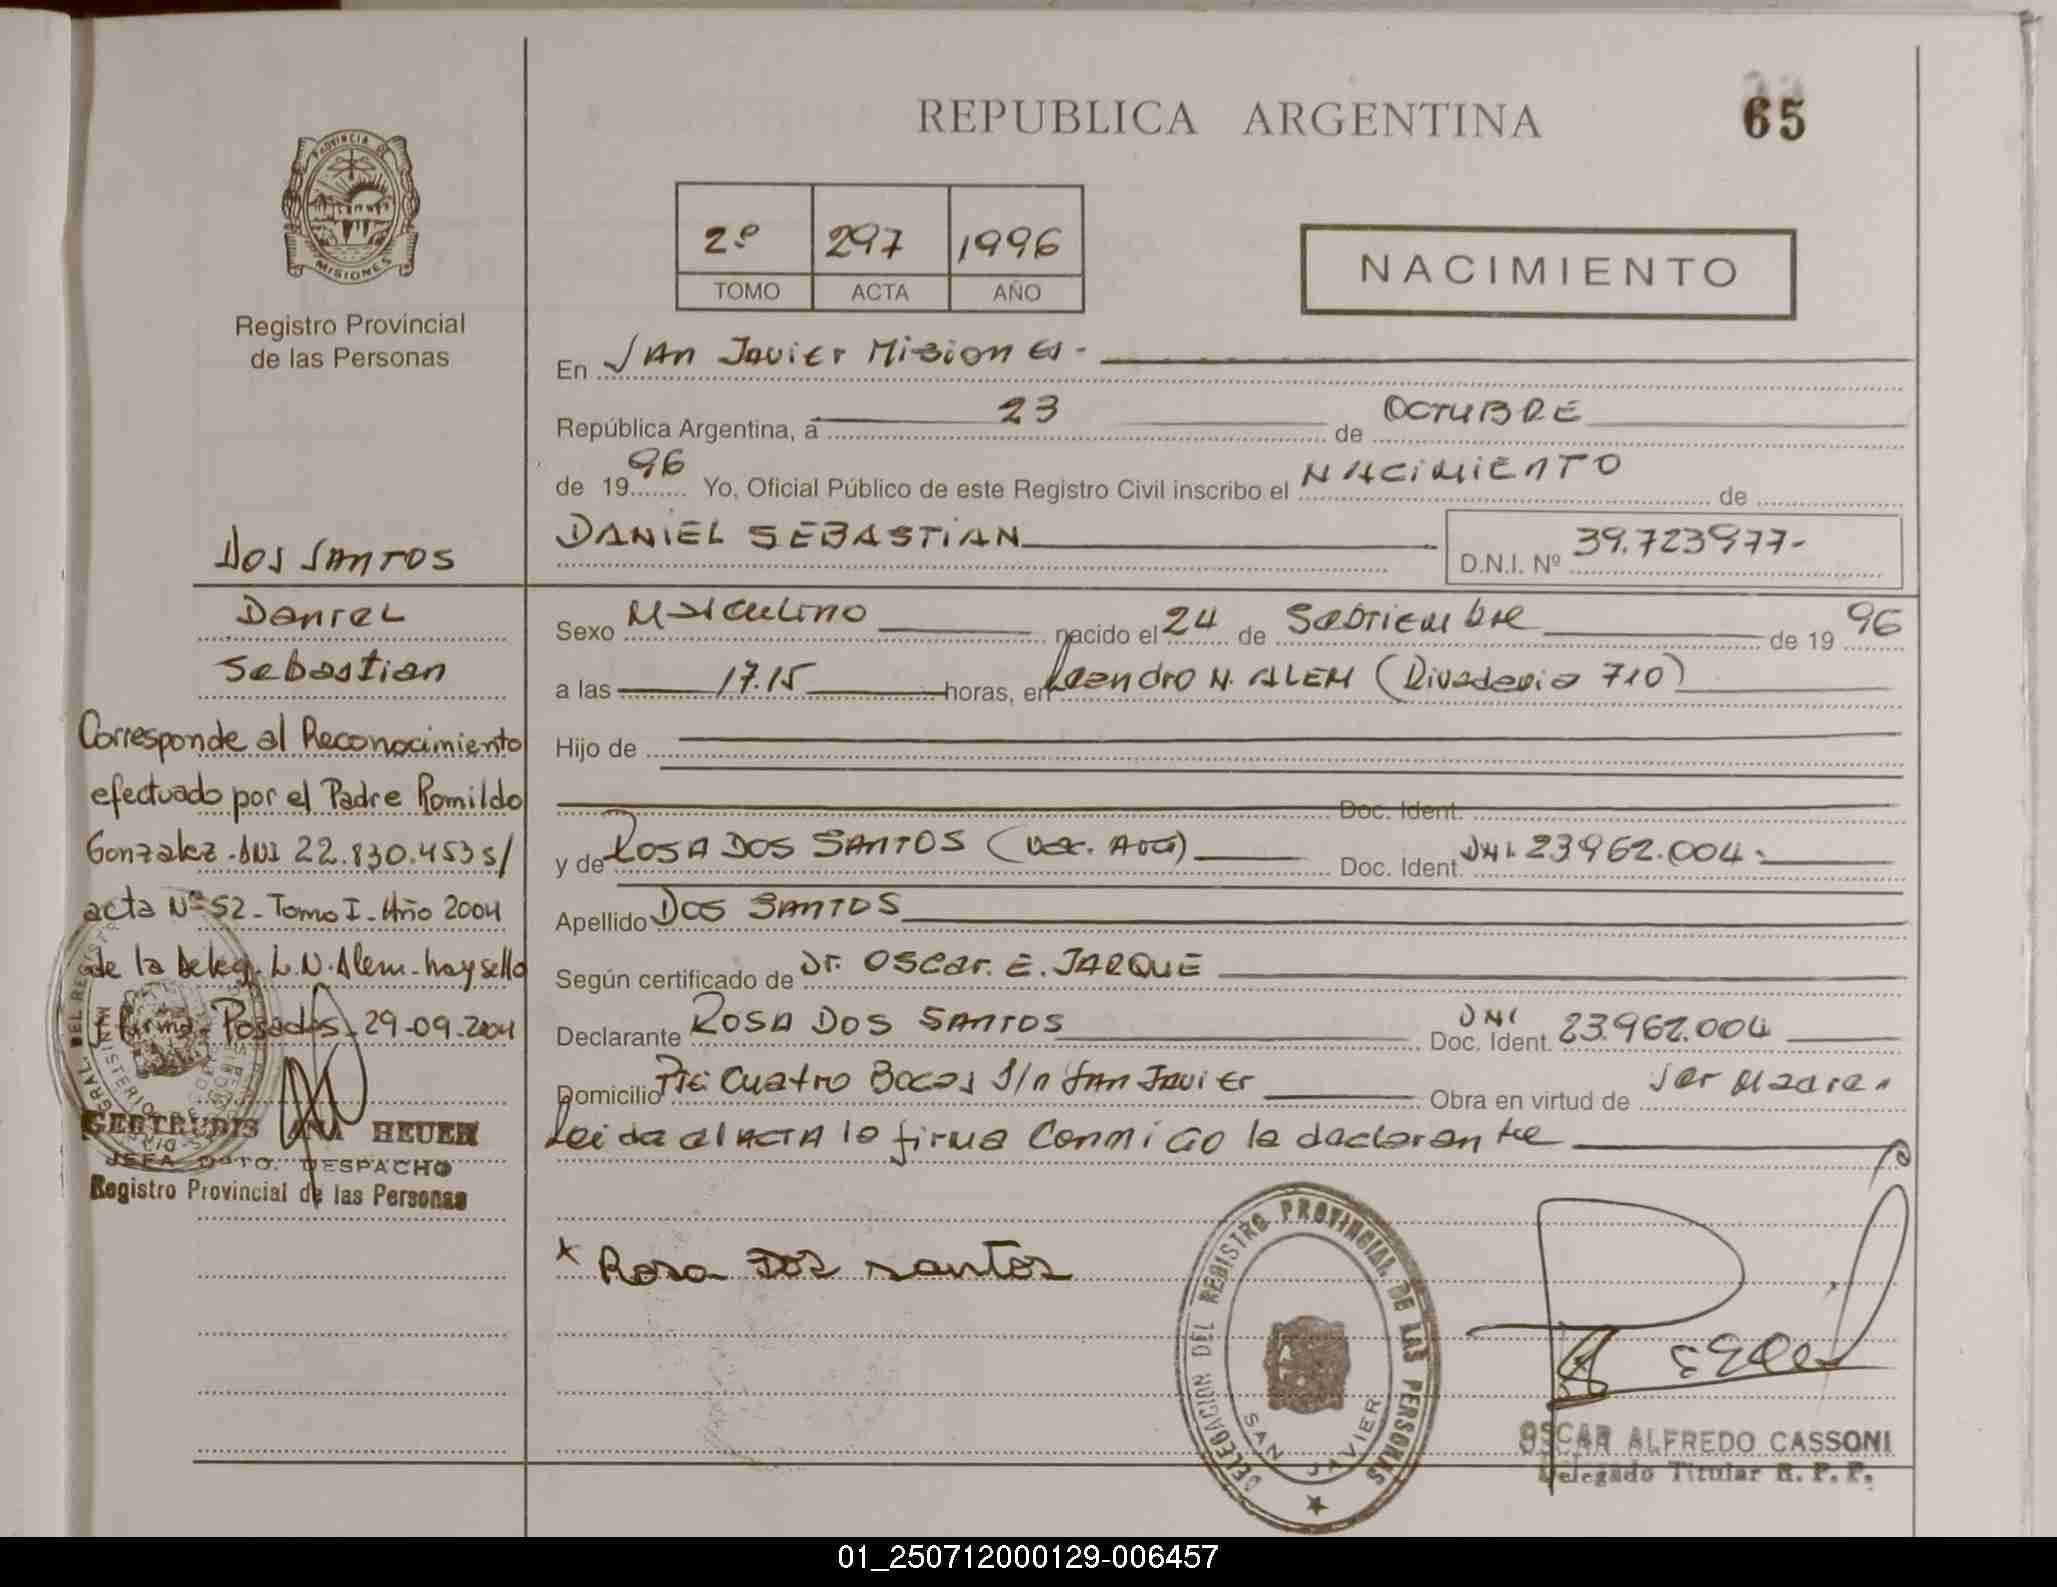 REPUBLICA ARGENTINA
65
PROVINCIA DE
MISIONES
Registro Provincial
de las Personas
2º 297 1996
TOMO ACTA AÑO
NACIMIENTO
En San Javier Misiones-
República Argentina, a 23 de OCTUBRE
de 1996 Yo, Oficial Público de este Registro Civil inscribo el NACIMIENTO de
DANIEL SEBASTIAN D.N.I. Nº 39.723977-
Sexo Masculino nacido el 24 de Sebtiembre de 1996
a las 17.15 horas, en Leandro N. ALEM (Rivadavia 710)
Hijo de
Doc. Ident.
y de ROSA DOS SANTOS Doc. Ident. DNI 23.962.004.
Apellido DOS SANTOS
Según certificado de Dr. Oscar. E. JARQUE
Declarante ROSA DOS SANTOS Doc. Ident. DNI 23.962.004
Domicilio Pje Cuatro Bocas S/n San Javier Obra en virtud de ser Madre.
Leida el ACTA la firma Conmigo la declarante
x Rosa Dos santos
DELEGACION DEL REGISTRO PROVINCIAL DE LAS PERSONAS
SAN JAVIER
OSCAR ALFREDO CASSONI
Delegado Titular R. P. P.
Dos Santos
Daniel
Sebastian
Corresponde al Reconocimiento
efectuado por el Padre Romildo
Gonzalez - DNI 22.830.453 s/
acta Nº 52 - Tomo I - Año 2004
de la Deleg. L.N. Alem - hay sello
y firma - Posadas - 29-09-2004
GERTRUDIS ANA HEUER
JEFA DPTO. DESPACHO
Registro Provincial de las Personas
01_250712000129-006457